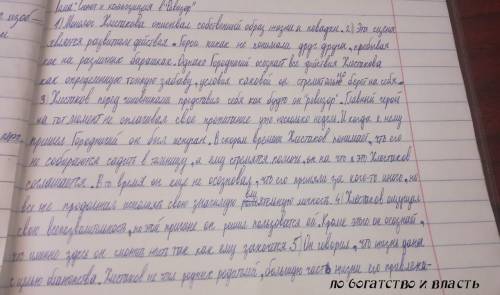 Тема: "Сюжет и композиция в "Ревизор"
1) Монолог Хлестакова описывал собственный образ жизни и повадки. 2) Эта сцена
является развитием действия. Герои никак не понимали друг друга, пребывая
как на различных баррикадах. Однако Городничий осознает все действия Хлестакова
как определенную тонкую забаву, условия каковой он стремительно берет на себя.
3. Хлестаков перед чиновниками представил себя как будто он "ревизор". Главный герой
на тот момент не оплачивал свое пропитание уже несколько недель. И когда к нему
пришел Городничий он был испуган. В скором времени Хлестаков понимает, что его
не собираются садить в темницу, а ему стремятся помочь, он на что и это Хлестаков
соглашается. В то время он еще не осознавал, что его приняли за кого-то иного, но
все же продолжил исполнять свою значимую личность. 4. Хлестаков ощущал
свою вседозволенность, по этой причине он решил пользоваться ей. Кроме этого он осознал,
что именно здесь он сможет жить так как ему захочется 5) Он говорил, что жизнь дана
с целью блаженства. Хлестаков не чтил родных родителей, большую часть жизни его привлека-
ло богатство и власть